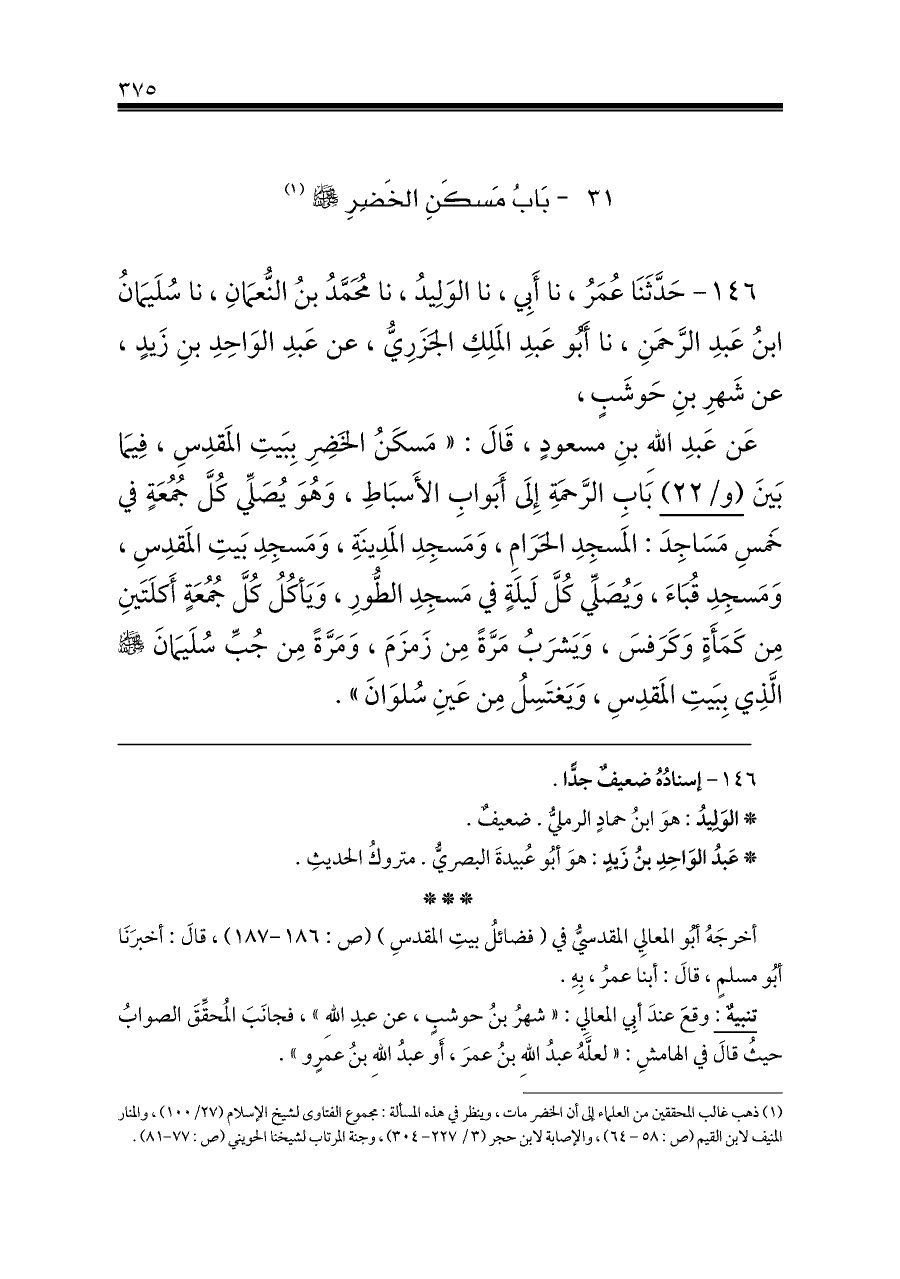 ٣٧٥
٣١ - بَابُ مَسكَنِ الخَضِرِ ﷺ (١)
١٤٦- حَدَّثَنَا عُمَرُ ، نا أَبِي ، نا الوَلِيدُ ، نا مُحَمَّدُ بنُ النُّعمَانِ ، نا سُلَيمَانُ
ابنُ عَبدِ الرَّحمَنِ ، نا أَبُو عَبدِ المَلِكِ الجَزَرِيُّ ، عن عَبدِ الوَاحِدِ بنِ زَيدٍ ،
عن شَهرِ بنِ حَوشَبٍ ،
عَن عَبدِ الله بنِ مسعودٍ ، قَالَ : « مَسكَنُ الخَضِرِ بِبَيتِ المَقدِسِ ، فِيمَا
بَينَ (و/ ٢٢) بَابِ الرَّحمَةِ إِلَى أَبوابِ الأَسبَاطِ ، وَهُوَ يُصَلِّي كُلَّ جُمُعَةٍ في
خَمسِ مَسَاجِدَ : المَسجِدِ الحَرَامِ ، وَمَسجِدِ المَدِينَةِ ، وَمَسجِدِ بَيتِ المَقدِسِ ،
وَمَسجِدِ قُبَاءَ ، وَيُصَلِّي كُلَّ لَيلَةٍ في مَسجِدِ الطُّورِ ، وَيَأكُلُ كُلَّ جُمُعَةٍ أَكلَتَينِ
مِن كَمَأَةٍ وَكَرَفسَ ، وَيَشرَبُ مَرَّةً مِن زَمزَمَ ، وَمَرَّةً مِن جُبِّ سُلَيمَانَ ﷺ
الَّذِي بِبَيتِ المَقدِسِ ، وَيَغتَسِلُ مِن عَينِ سُلوَانَ » .
١٤٦- إسنادُهُ ضعيفٌ جدًّا .
* الوَلِيدُ : هوَ ابنُ حمادٍ الرمليُّ . ضعيفٌ .
* عَبدُ الوَاحِدِ بنُ زَيدٍ : هوَ أَبُو عُبيدةَ البصريُّ . متروكُ الحديثِ .
* * *
أخرجَهُ أَبُو المعالِي المقدسيُّ في ( فضائلُ بيتِ المقدسِ ) (ص : ١٨٦-١٨٧) ، قالَ : أخبرَنَا
أَبُو مسلمٍ ، قالَ : أبنا عمرُ ، بِهِ .
تنبيهٌ : وقعَ عندَ أبِي المعالِي : « شهرُ بنُ حوشبٍ ، عن عبدِ اللهِ » ، فجانَبَ المُحقِّقَ الصوابُ
حيثُ قالَ في الهامشِ : « لعلَّهُ عبدُ اللهِ بنُ عمرَ ، أَو عبدُ اللهِ بنُ عمرٍو » .
(١) ذهب غالب المحققين من العلماء إلى أن الخضر مات ، وينظر في هذه المسألة : مجموع الفتاوى لشيخ الإسلام (٢٧/ ١٠٠) ، والمنار
المنيف لابن القيم (ص : ٥٨ - ٦٤) ، والإصابة لابن حجر (٣/ ٢٢٧- ٣٠٤) ، وجنة المرتاب لشيخنا الحويني (ص : ٧٧-٨١) .